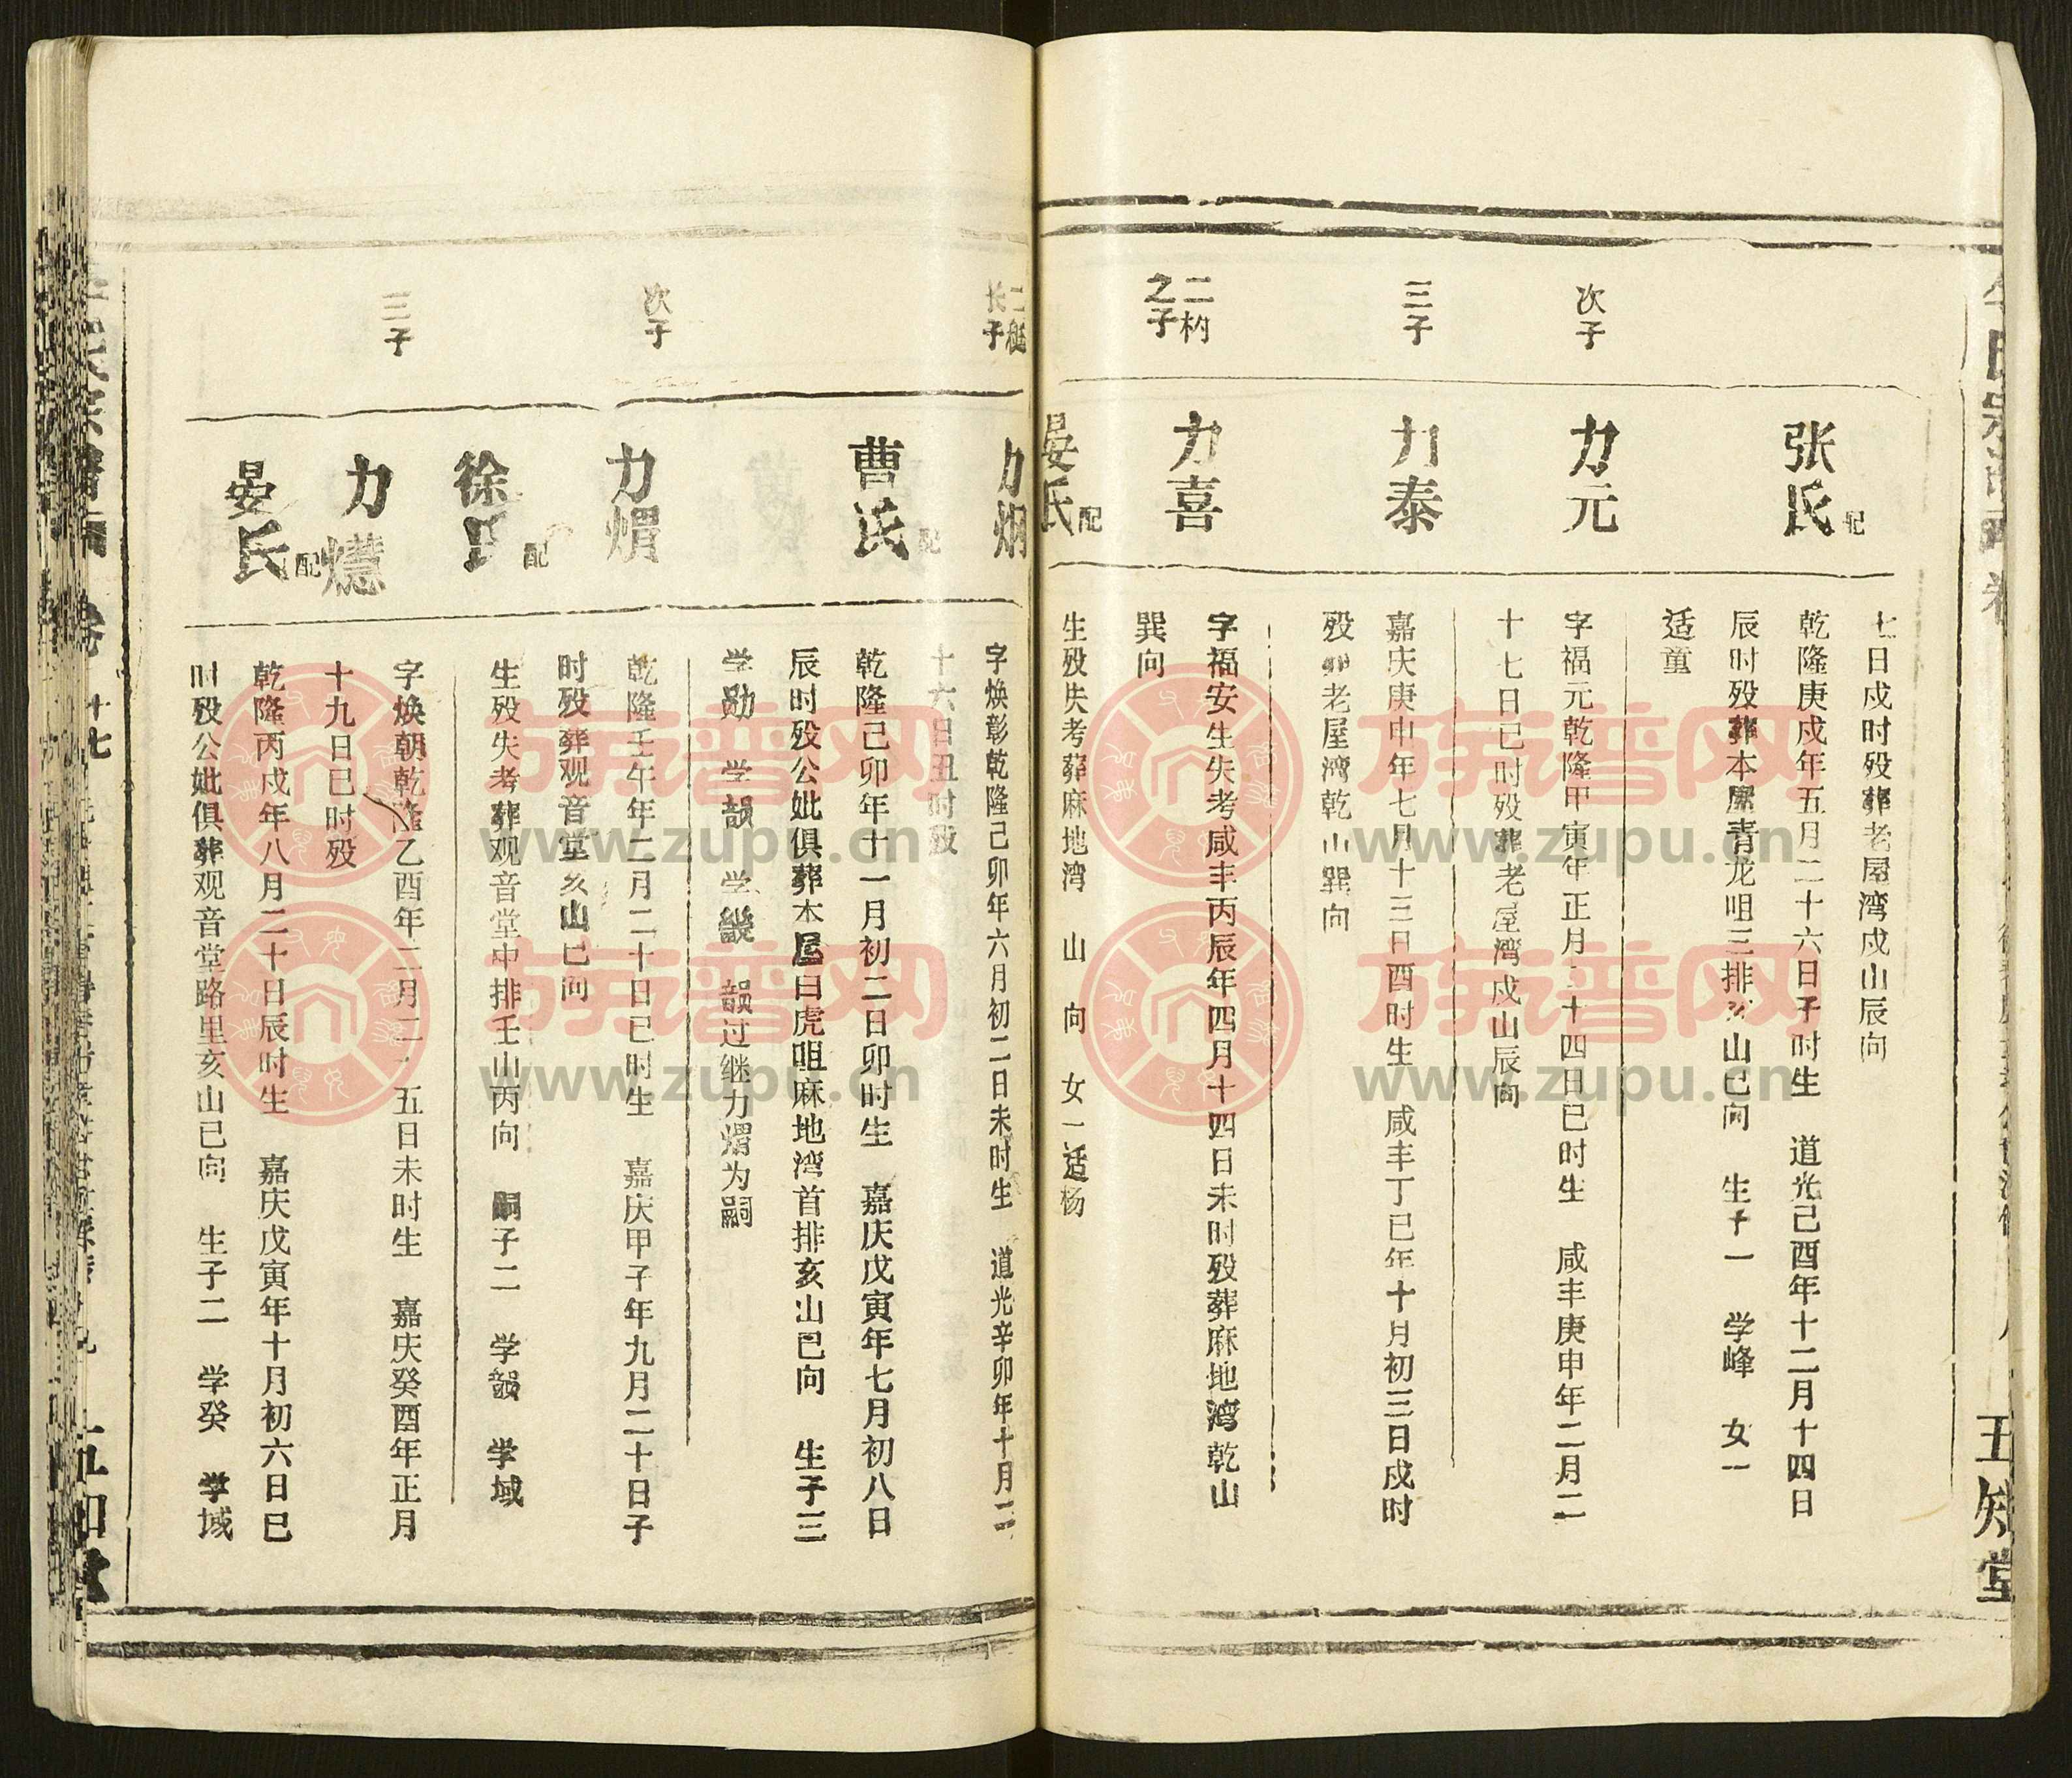 七日戌时殁葬老屋湾戌山辰向
张氏
配
乾隆庚戌年五月二十六日子时生 道光己酉年十二月十四日
辰时殁葬本屋青龙咀三排亥山巳向 生子一 学峰 女一
适童
次子
力元
字福元乾隆甲寅年正月二十四日巳时生 咸丰庚申年二月二
十七日巳时殁葬老屋湾戌山辰向
三子
力泰
嘉庆庚申年七月十三日酉时生 咸丰丁巳年十月初三日戌时
殁葬老屋湾乾山巽向
二杓
之子
力喜
字福安生失考咸丰丙辰年四月十四日未时殁葬麻地湾乾山
巽向
晏氏
配
生殁失考葬麻地湾 山 向 女一适杨
五知堂
长子
力炯
字焕彰乾隆己卯年六月初二日未时生 道光辛卯年十月二
十六日丑时殁
曹氏
配
乾隆己卯年十一月初二日卯时生 嘉庆戊寅年七月初八日
辰时殁公妣俱葬本屋白虎咀麻地湾首排亥山巳向 生子三
学勋 学韻 学畿 韻过继力熠为嗣
次子
力焨
乾隆壬午年二月二十日巳时生 嘉庆甲子年九月二十日子
时殁葬观音堂亥山巳向
徐氏
配
生殁失考葬观音堂中排壬山丙向 嗣子二 学韻 学域
三子
力
字焕朝乾隆乙酉年二月二十五日未时生 嘉庆癸酉年正月
十九日巳时殁
晏氏
配
乾隆丙戌年八月二十日辰时生 嘉庆戊寅年十月初六日巳
时殁公妣俱葬观音堂路里亥山巳向 生子二 学癸 学域
卷
十七
五知堂
族谱网
www.zupu.cn
族谱网
www.zupu.cn
族谱网
www.zupu.cn
族谱网
www.zupu.cn